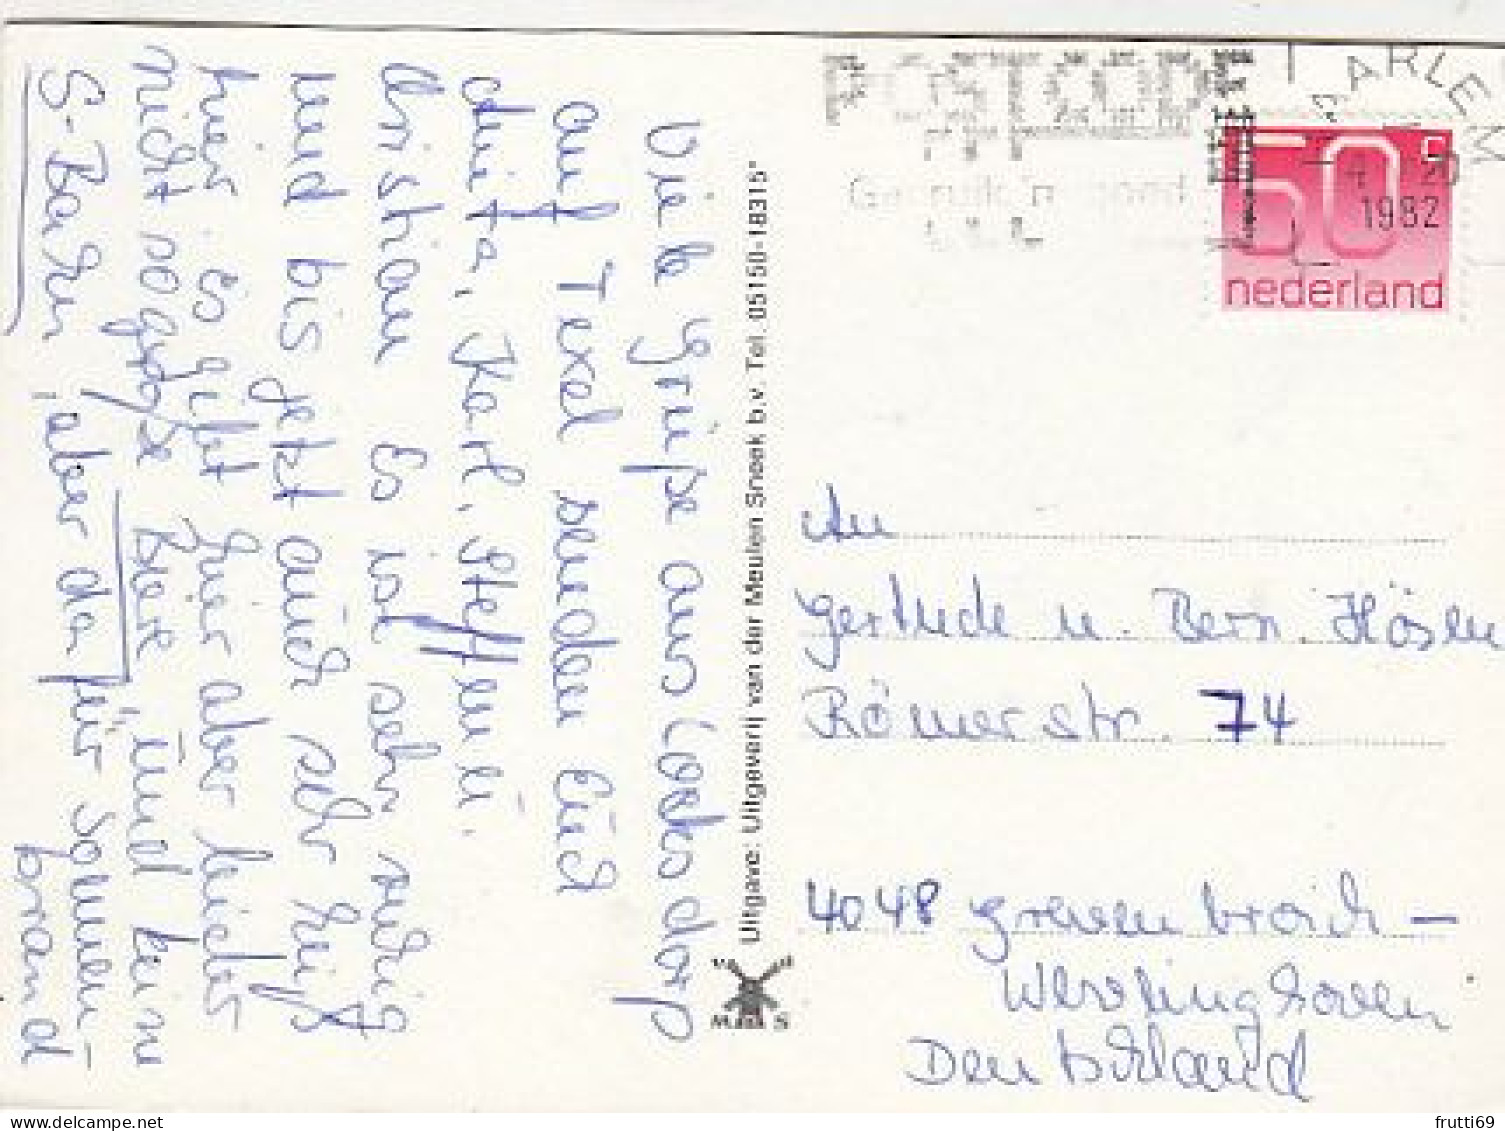 Viele Grüße aus Cocksdorp
auf Texel senden Euch
Anita, Karl, Steffen u.
Christian. Es ist sehr ruhig
und bis jetzt auch sehr heiß
hier. Es gibt hier aber leider
nicht so große Biere und keine
S-Bahn, aber dafür Sonnen-
brand
Uitgave: Uitgeverij van der Meulen Sneek b.v. Tel. 05150-18315*
POSTCODE
Gebruik 'm goed
HAARLEM
1982
50c
nederland
An
Gertrude u. Bern.
Römerstr. 74
4048 Grevenbroich-
Wevelinghoven
Deutschland
frutti69